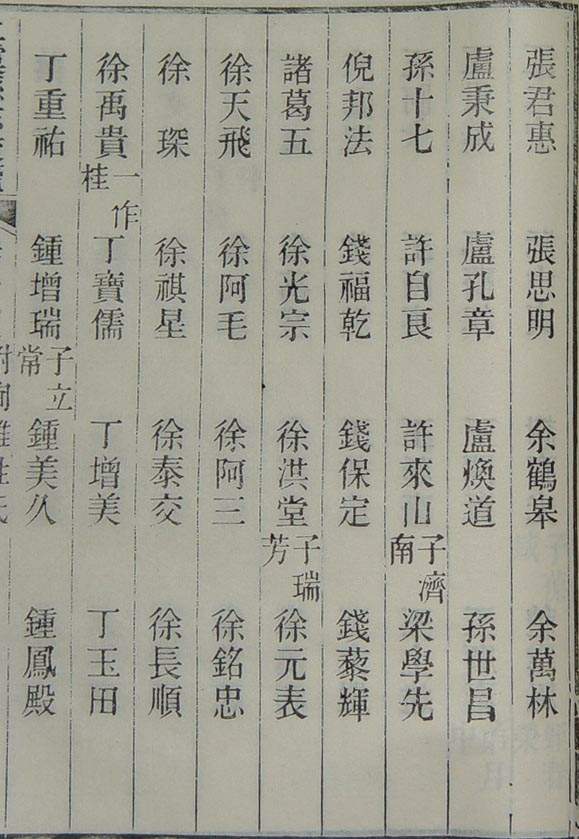 張君惠 張思明 余鶴皋 余萬林
盧秉成 盧孔章 盧煥道 孫世昌
孫十七 許自良 許來山子濟南 梁學先
倪邦法 錢福乾 錢保定 錢藜輝
諸葛五 徐光宗 徐洪堂子瑞芳 徐元表
徐天飛 徐阿毛 徐阿三 徐銘忠
徐琛 徐祺星 徐泰交 徐長順
徐禹貴一作桂 丁寶儒 丁增美 丁玉田
丁重祐 鍾增瑞子立常 鍾美久 鍾鳳殿